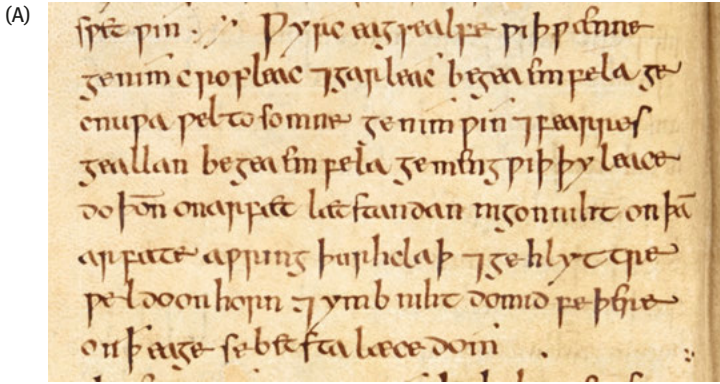 (A)
sƿet ƿin . Ƿyrc eagsealfe ƿiþ ƿænne
genim cropleac ⁊garleac begea em fela ge
cnuƿa ƿel to somne genim ƿin ⁊ fearres
geallan begea em fela gemeng ƿiþ þy leace
do þon̄ on arfæt læt standan nigon niht on þā
arfæte aƿring þurh claþ ⁊ge hlyttre
ƿel do on horn ⁊ ymb niht do mid feþere
on ꝥ eage se betsta læce dom